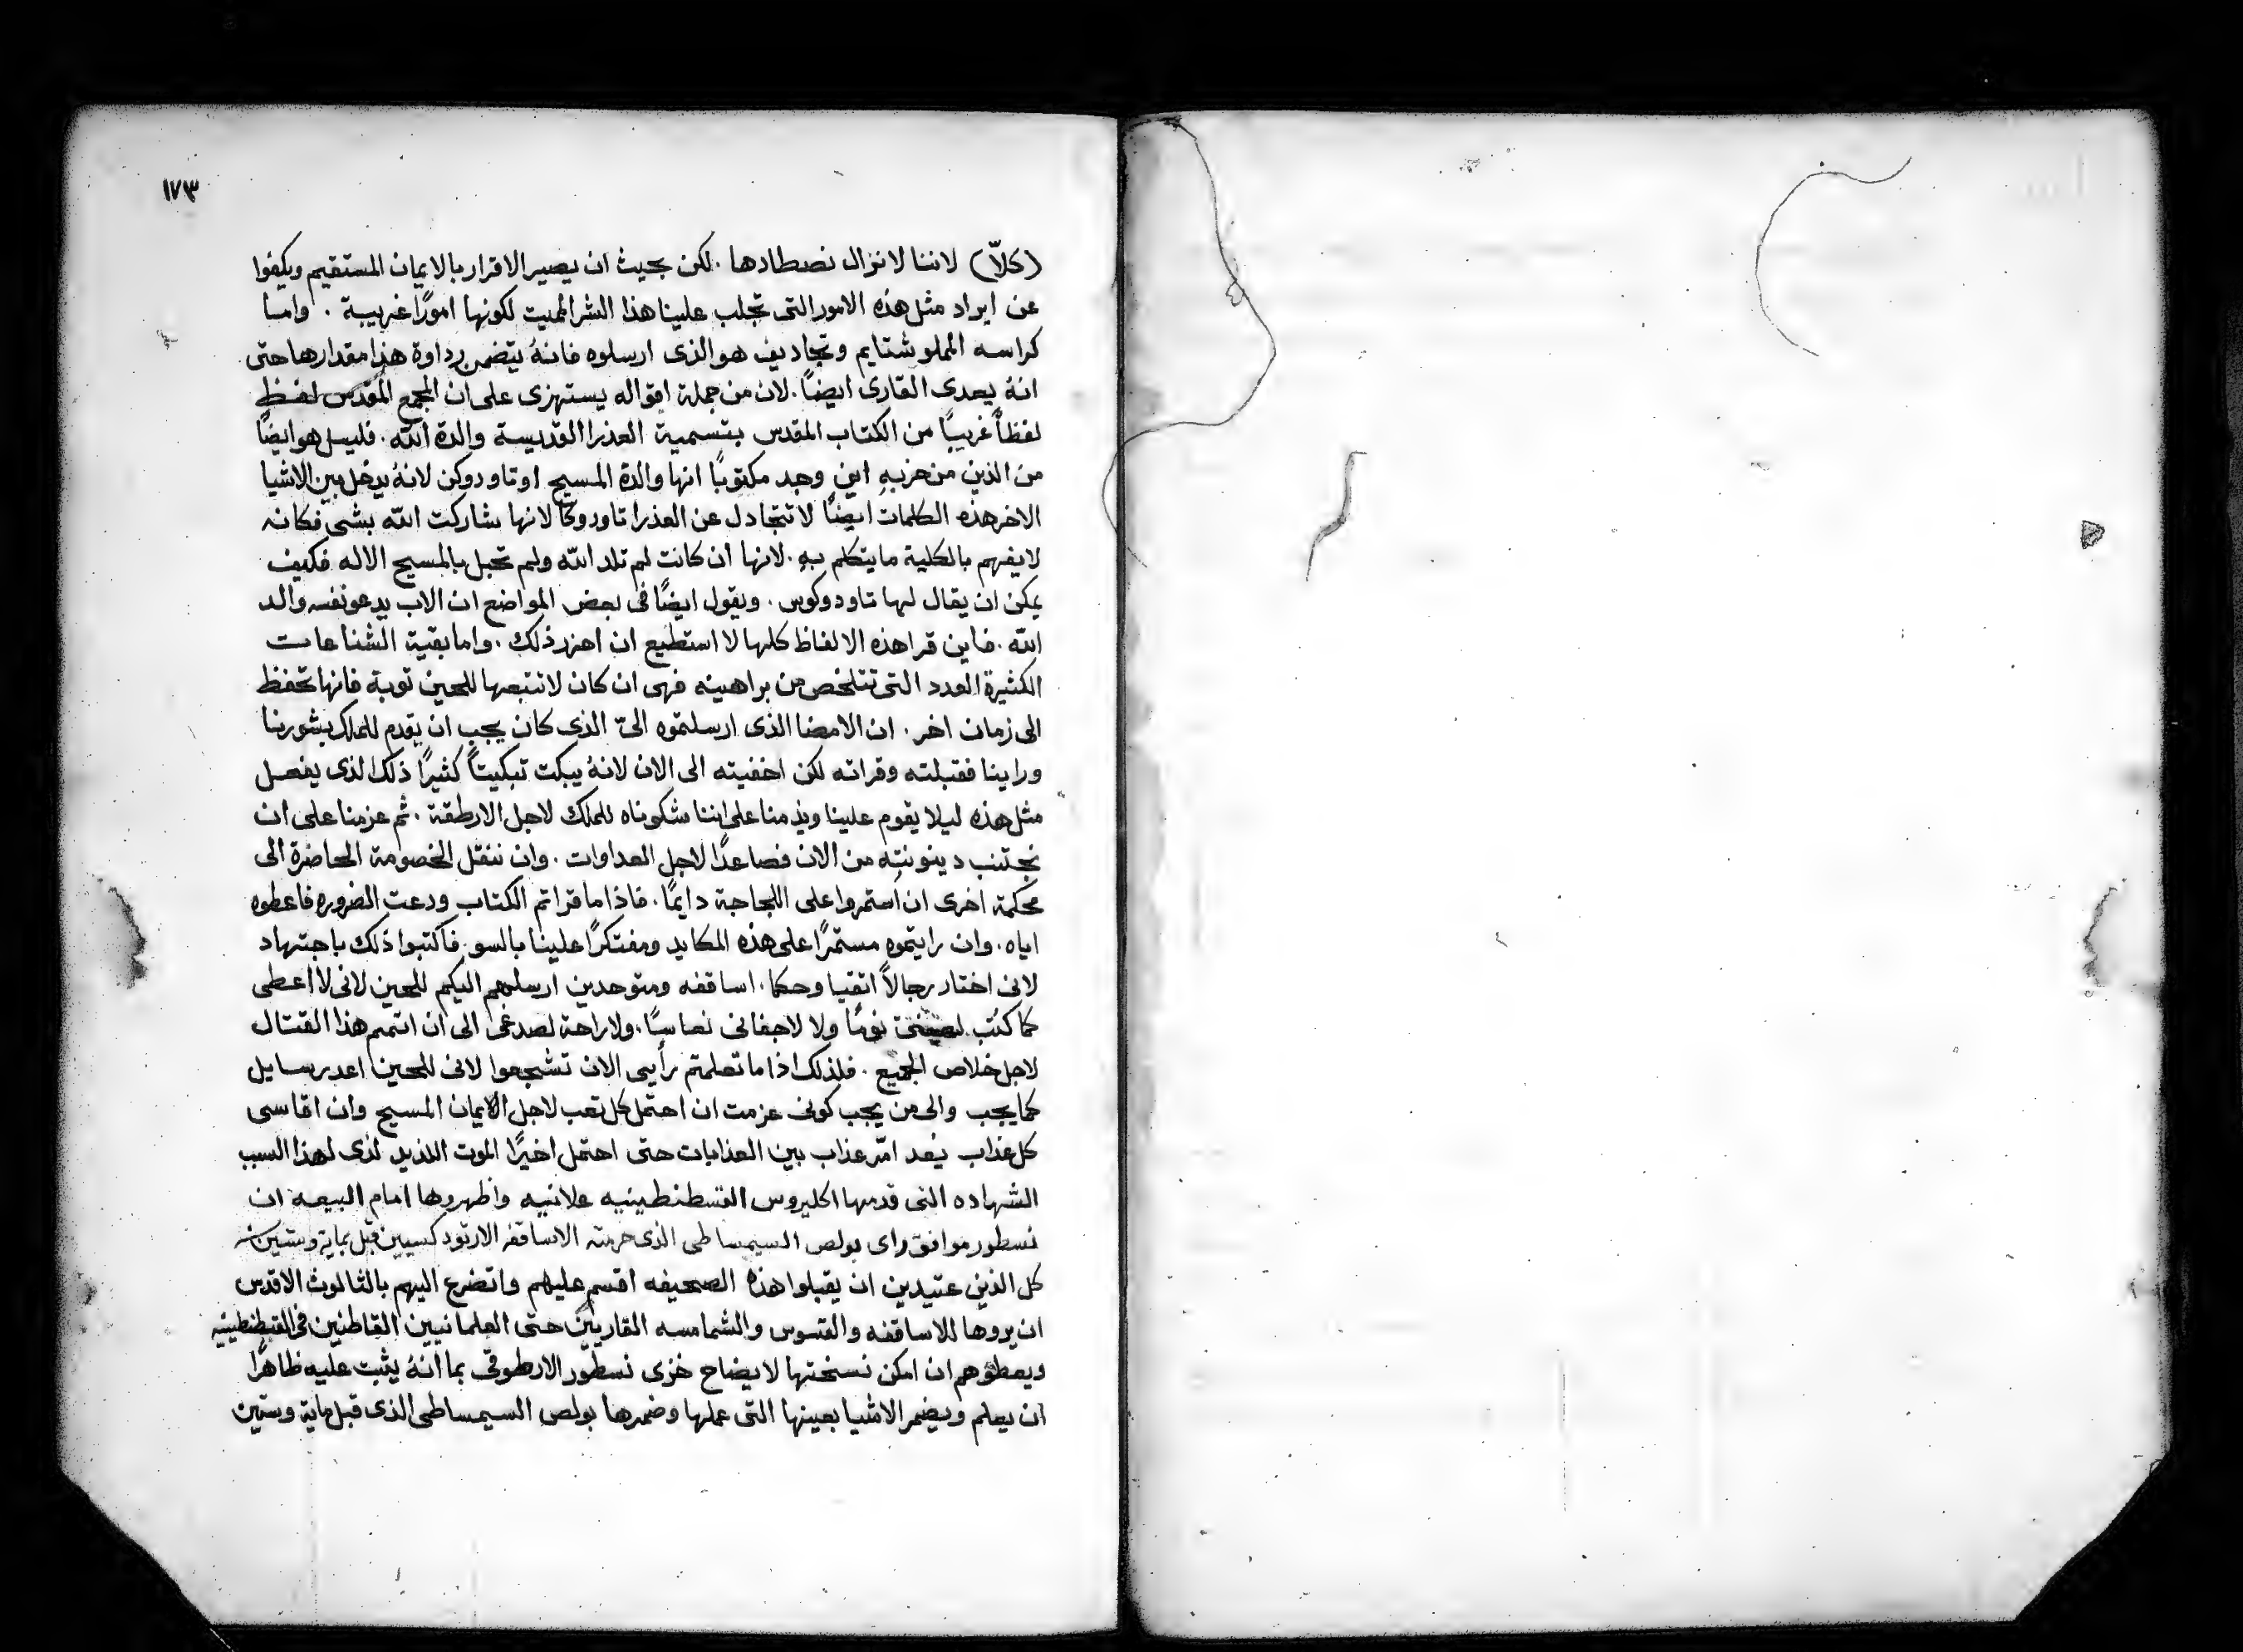 ١٧٣
(كلاّ) لاننا لا نزال نصطادها . لكن بحيث ان يصير الاقرار بالايمان المستقيم ويكفوا
عن ايراد مثل هذه الامور التى تجلب علينا هذا الشر المميت لكونها امورًا غريبة . واما
كراسه المملو شتايم وتجاديف هو الذى ارسلوه فانهُ يتضمن رداوة هذا مقدارها حتى
انهُ يعدى القارى ايضًا . لان من جملة اقواله يستهزى على ان المجمع المقدس لفظ
لفظاً غريبًا من الكتاب المقدس بتسمية العذرا القديسة والدة الله . فليسل هو ايضًا
من الذين من حزبهِ اين وجد مكتوبًا انها والدة المسيح او تاودوكن لانهُ يدخل بين الاشيا
الاخر هذه الكلمات ايضًا لا تتجادل عن العذرا تاودوخا لانها شاركت الله بشى فكانه
لا يفهم بالكلية ما يتكلم بهِ . لانها ان كانت لم تلد الله ولم تحبل بالمسيح الاله فكيف
يمكن ان يقال لها تاودوكوس . ويقول ايضًا فى بعض المواضع ان الاب يدعو نفسه والد
الله . فاين قرا هذه الالفاظ كلها لا استطيع ان احزر ذلك . واما بقية الشناعات
الكثيرة العدد التى تتلخص من براهينه فهى ان كان لا تتبعها للحين توبة فانها تحفظ
الى زمان اخر . ان الامضا الذى ارسلتموه الىّ الذى كان يجب ان يقدم للملك بشورنا
وراينا فقبلته وقراته لكن اخفيته الى الان لانهُ يبكت تبكيتاً كثيرًا ذلك الذى يفعل
مثل هذه ليلا يقوم علينا ويذمنا على اننا شكوناه للملك لاجل الارطقة . ثم عزمنا على ان
نجتنب دينونته من الان فصاعدًا لاجل العداوات . وان ننقل الخصومة الحاضرة الى
محكمة اخرى ان استمروا على اللجاجة دايمًا . فاذا ما قراتم الكتاب ودعت الضروره فاعطوه
اياه . وان رايتموه مستمرًا على هذه المكايد ومفتكرًا علينا بالسو . فاكتبوا ذلك باجتهاد
لانى اختار رجالاً اتقيا وحكما . اساقفه ومتوحدين ارسلهم اليكم للحين لانى لا اعطى
كما كُتب لعينىّ نومًا ولا لاجفانى نعاسًا . ولا راحة لصدغى الى ان اتمم هذا القتال
لاجل خلاص الجميع . فلذلك اذا ما تعلمتم رأيى الان تشجعوا لانى للحين اعد رسايل
كما يجب والى من يجب كونى عزمت ان احتمل كل تعب لاجل الايمان المسيح وان اقاسى
كل عذاب يُعد امرّ عذاب بين العذابات حتى احتمل اخيرًا الموت اللذيد لذى لهذا السبب
الشهاده التى قدمها اكليروس القسطنطينيه علانيه واظهروها امام البيعه ان
نسطور موافق راى بولص السيمساطى الذى حرمته الاساقفه الارتودكسيين قبل بماية وستين سنه
كل الذين عتيدين ان يقبلوا هذه الصحيفه اقسم عليهم واتضرع اليهم بالثالوث الاقدس
ان يروها للاساقفه والقسوس والشمامسه القاريين حتى العلمانيين القاطنين فى القسطنطينيه
ويعطوهم ان امكن نسختها لايضاح خزى نسطور الارطوقى بما انهُ يثبت عليه ظاهرًا
ان يعلم ويضمر الاشيا بعينها التى عملها وضمرها بولص السيمساطى الذى قبل ماية وستين